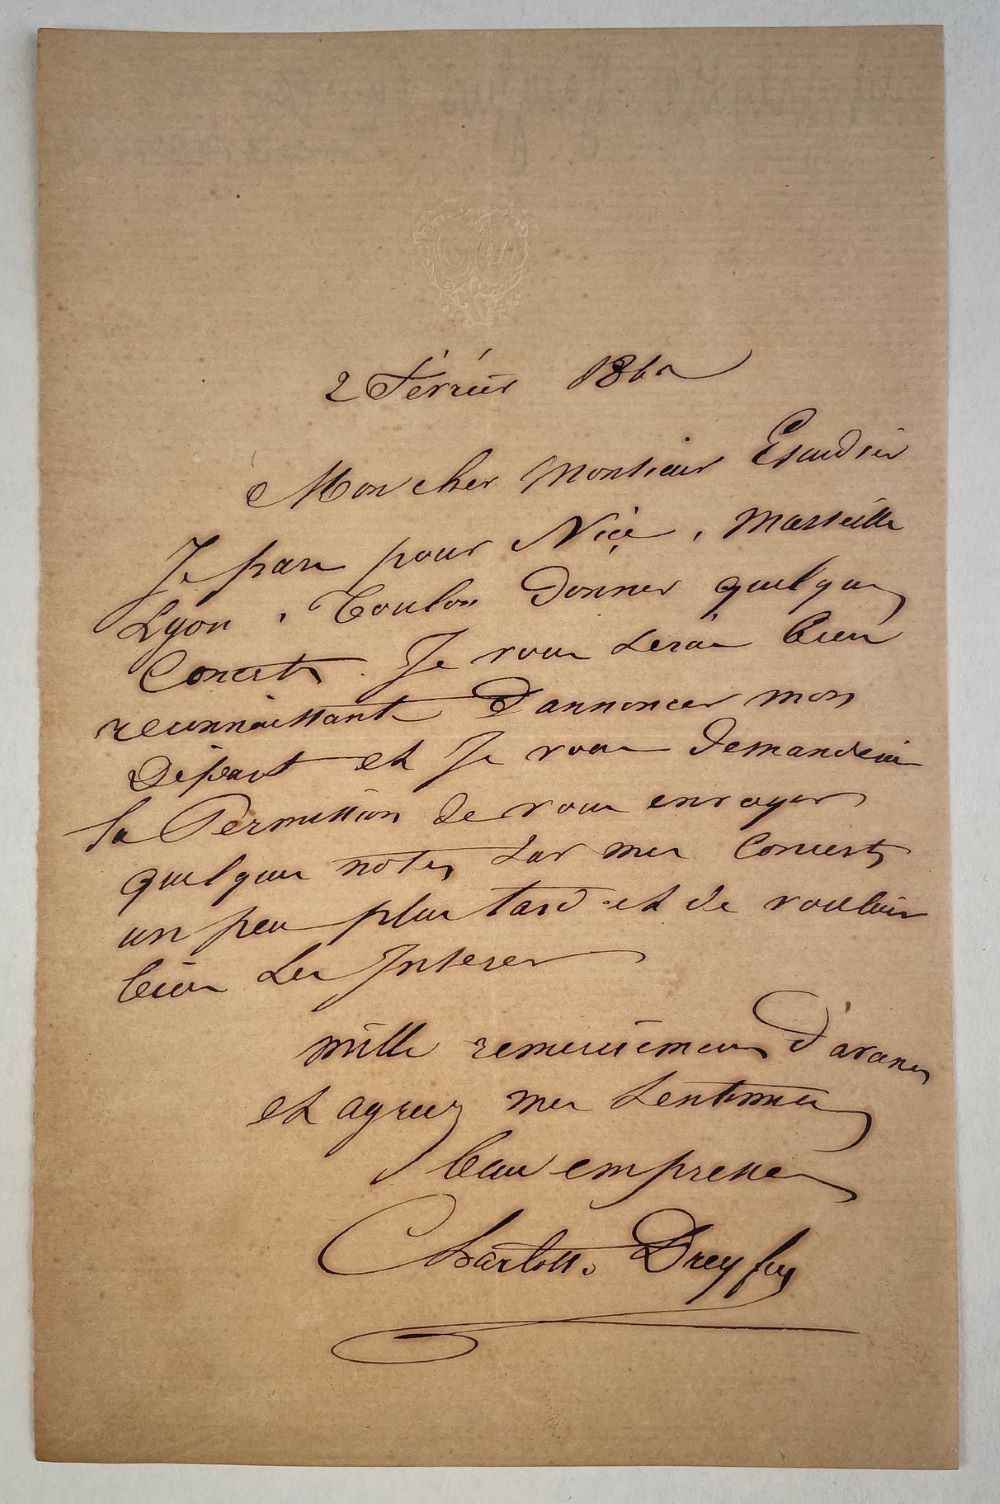 2 Février 1860
Mon cher Monsieur Escudier
Je pars pour Nice, Marseille
Lyon, Toulon donner quelques
Concerts. Je vous serais bien
reconnaissante d'annoncer mon
Départ et Je vous demanderai
la Permission de vous envoyer
quelques notes sur mes Concerts
un peu plus tard et de vouloir
bien les Inserer
mille remerciements d'avance
et agréez mes sentiments
bien empressés
Charlotte Dreyfus